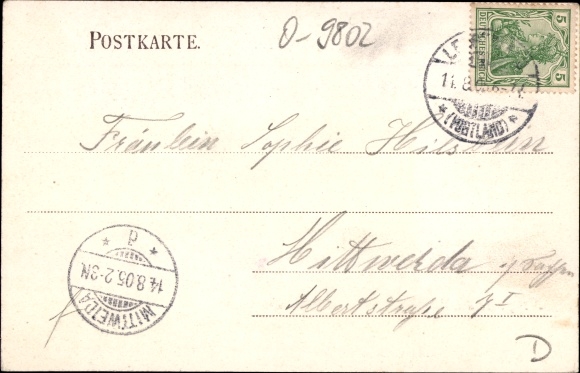 POSTKARTE.
O-9802
5 DEUTSCHES REICH 5
11.8.
(GRTLAND)
Fräulein Sophie
Mittweida i/
Albertstraße I
MITTWEIDA
14.8.05.2-3N.
* d *
D